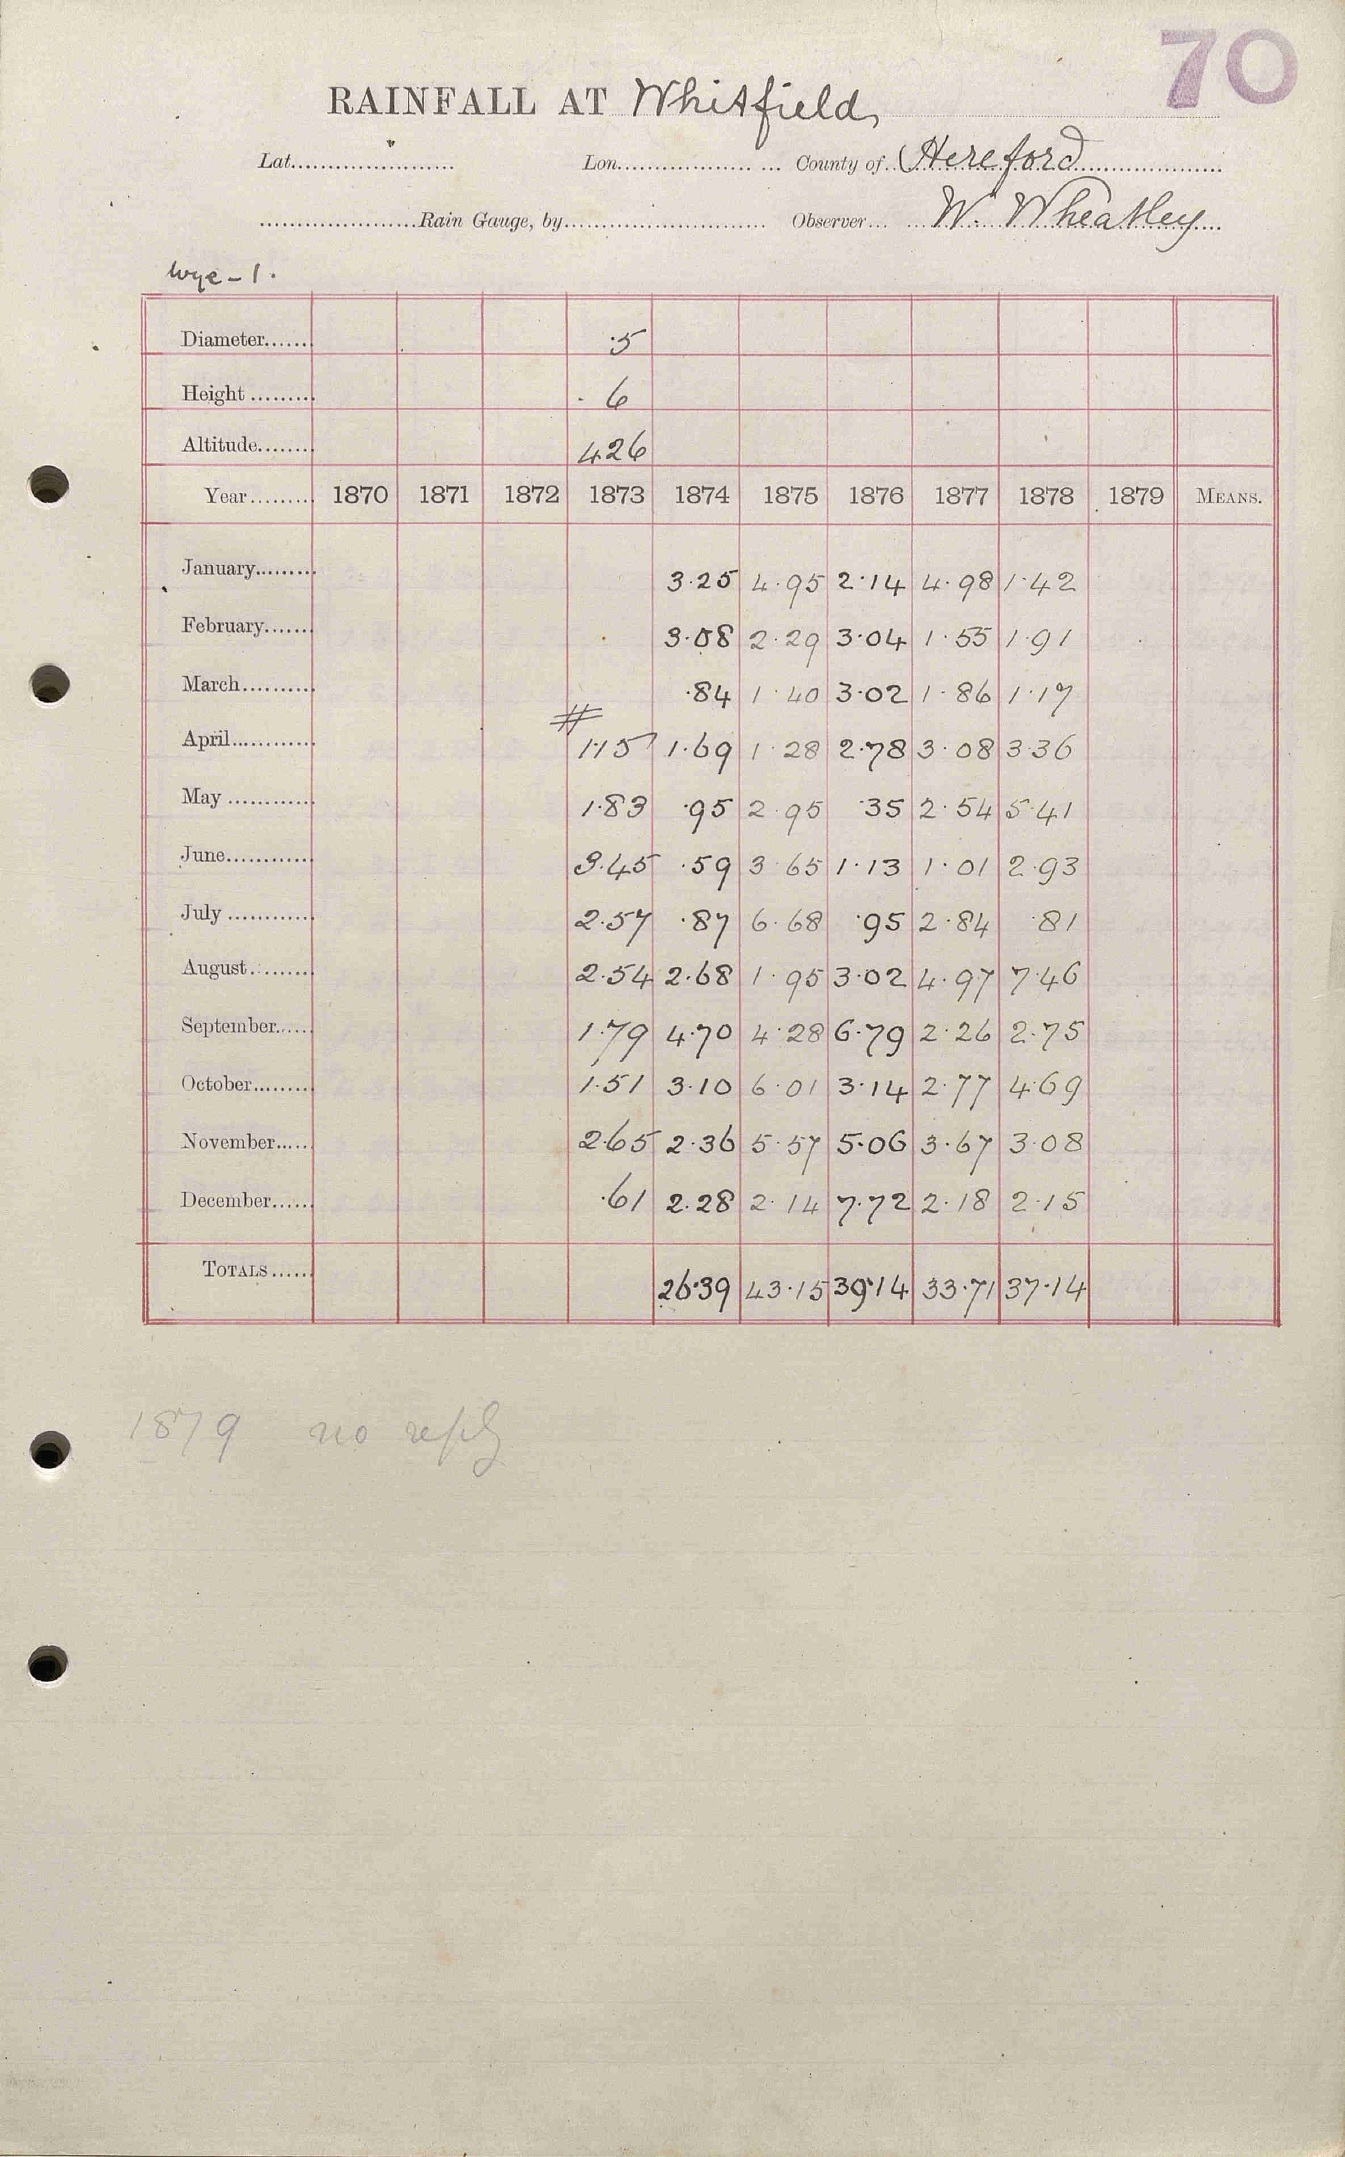 70
RAINFALL AT Whitfield
Lat. Lon. County of Hereford
Rain Gauge, by Observer W. Wheatley
Wye - 1.
Diameter ·5
Height 6
Altitude 426
Year 1870 1871 1872 1873 1874 1875 1876 1877 1878 1879 MEANS.
January 3·25 4·95 2·14 4·98 1·42
February 3·08 2·29 3·04 1·55 1·91
March ·84 1·40 3·02 1·86 1·17
April # 1·15 1·69 1·28 2·78 3·08 3·36
May 1·83 ·95 2·95 ·35 2·54 5·41
June 3·45 ·59 3·65 1·13 1·01 2·93
July 2·57 ·87 6·68 ·95 2·84 ·81
August 2·54 2·68 1·95 3·02 4·97 7·46
September 1·79 4·70 4·28 6·79 2·26 2·75
October 1·51 3·10 6·01 3·14 2·77 4·69
November 2·65 2·36 5·57 5·06 3·67 3·08
December ·61 2·28 2·14 7·72 2·18 2·15
TOTALS 26·39 43·15 39·14 33·71 37·14
1879 no reply